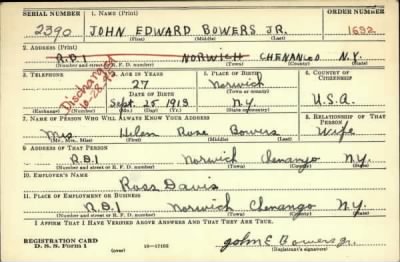 SERIAL NUMBER 1. NAME (Print) ORDER NUMBER
2390 JOHN EDWARD BOWERS JR. 1692
(First) (Middle) (Last)
2. ADDRESS (Print)
R.D.1 NORWICH CHENANGO N.Y.
(Number and street or R. F. D. number) (Town) (County) (State)
3. TELEPHONE 4. AGE IN YEARS 5. PLACE OF BIRTH 6. COUNTRY OF CITIZENSHIP
Discharged
27 Norwich
DATE OF BIRTH (Town or county)
Sept. 25 1913 N.Y. U.S.A.
(Exchange) (Number) (Mo.) (Day) (Yr.) (State or country)
7. NAME OF PERSON WHO WILL ALWAYS KNOW YOUR ADDRESS 8. RELATIONSHIP OF THAT PERSON
Mrs. Helen Rose Bowers Wife
(Mr., Mrs., Miss) (First) (Middle) (Last)
9. ADDRESS OF THAT PERSON
R.D.1 Norwich Chenango N.Y.
(Number and street or R. F. D. number) (Town) (County) (State)
10. EMPLOYER'S NAME
Ross Davis
11. PLACE OF EMPLOYMENT OR BUSINESS
R.D.1 Norwich Chenango N.Y.
(Number and street or R. F. D. number) (Town) (County) (State)
I AFFIRM THAT I HAVE VERIFIED ABOVE ANSWERS AND THAT THEY ARE TRUE.
REGISTRATION CARD
D. S. S. Form 1 (over) John E Bowers Jr.
(Registrant's signature)